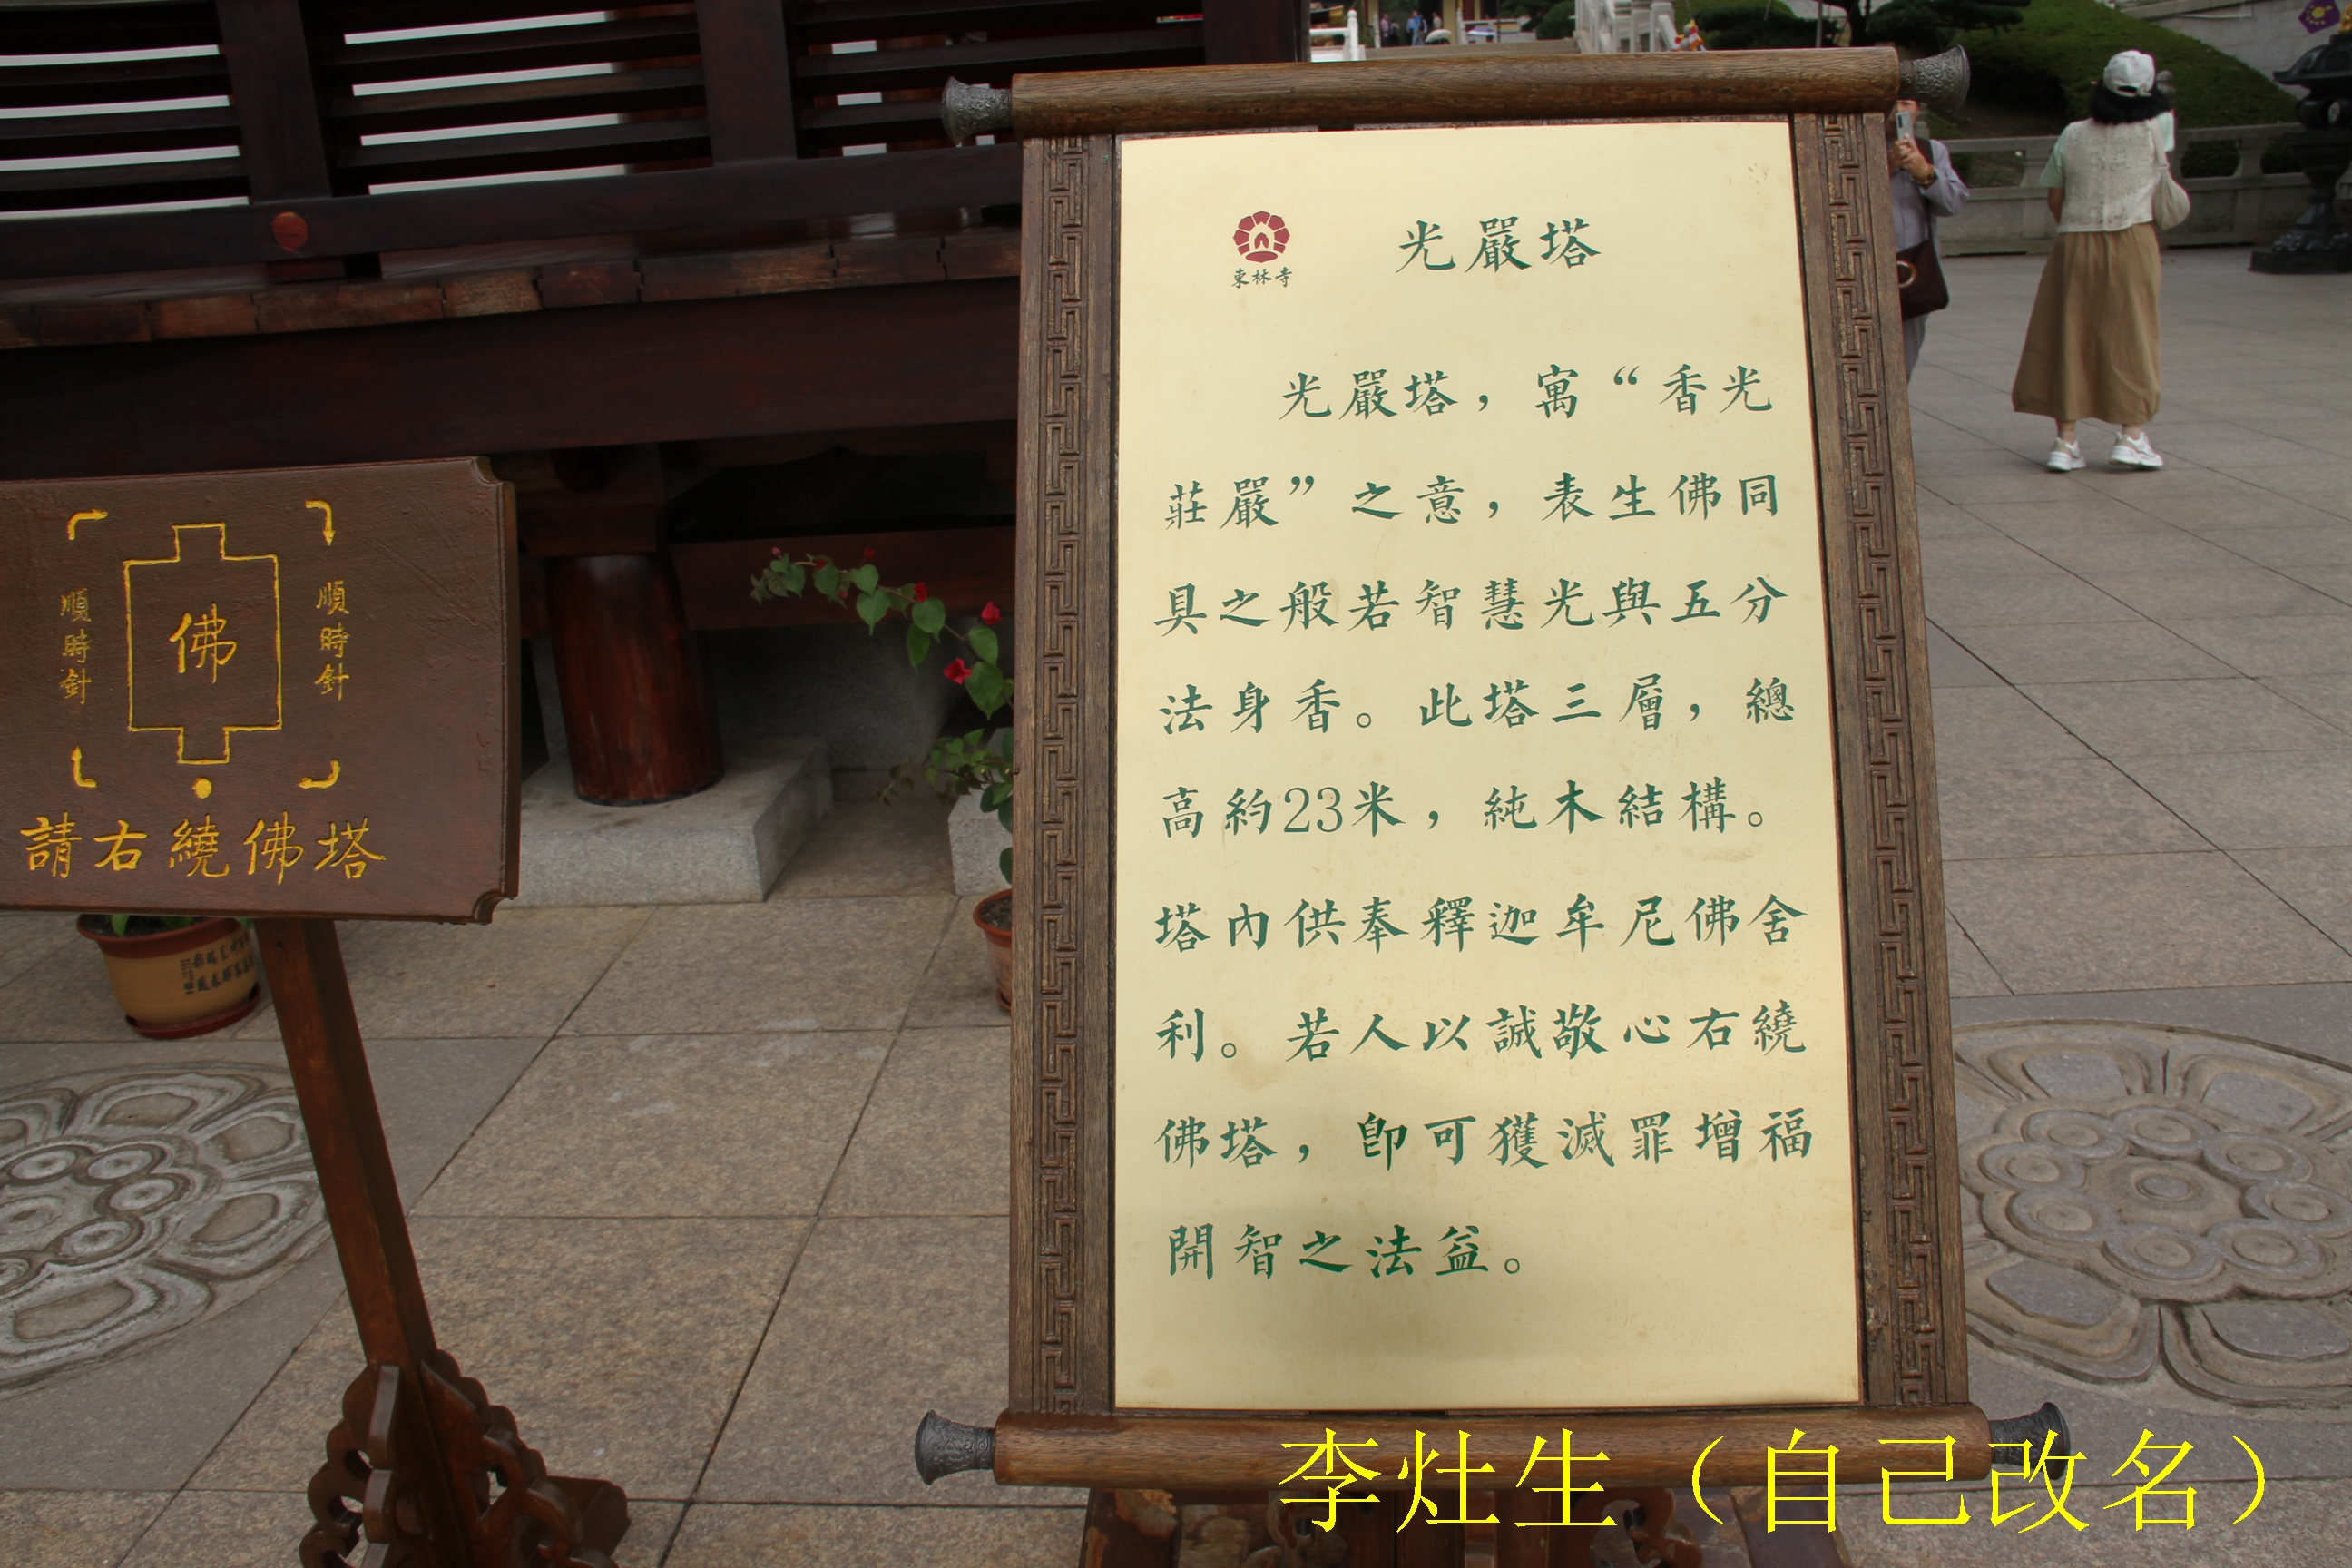 東林寺
光嚴塔
光嚴塔，寓“香光
莊嚴”之意，表生佛同
具之般若智慧光與五分
法身香。此塔三層，總
高約23米，純木結構。
塔內供奉釋迦牟尼佛舍
利。若人以誠敬心右繞
佛塔，卽可獲滅罪增福
開智之法益。
順時針
佛
順時針
請右繞佛塔
李灶生（自己改名）